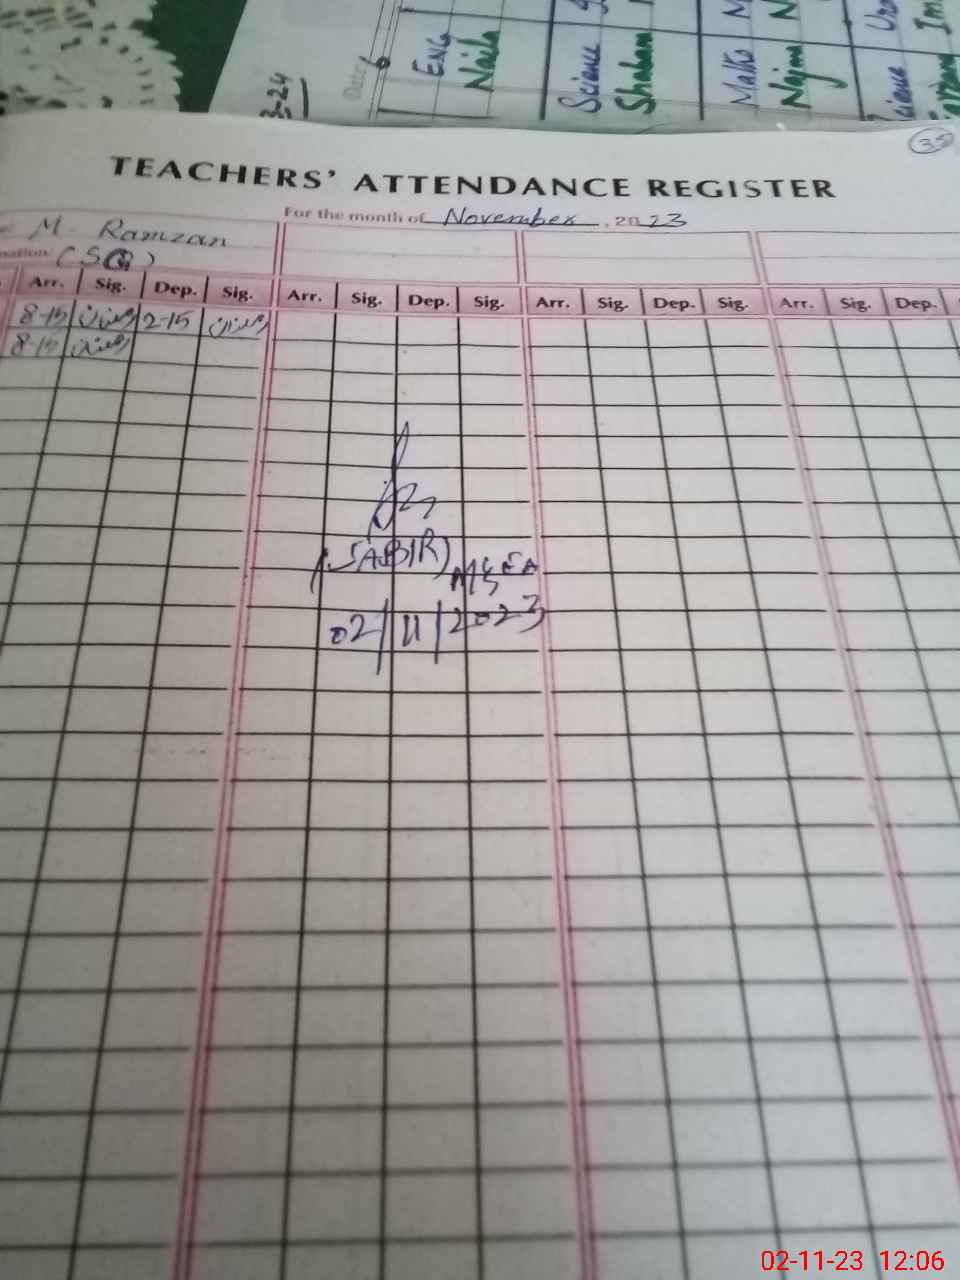 3-24
Date 6
ENG
Naila
Science
Shabam
Maths M
Najma N
cience Urd
Im
35
TEACHERS' ATTENDANCE REGISTER
For the month of November, 2023
M. Ramzan
nation: (SG)
Arr. Sig. Dep. Sig. Arr. Sig. Dep. Sig. Arr. Sig. Dep. Sig. Arr. Sig. Dep. S
8-15 رمضان 2-15 رمضان
8-15 رمضان
(SABIR)
02/11/2023
02-11-23 12:06